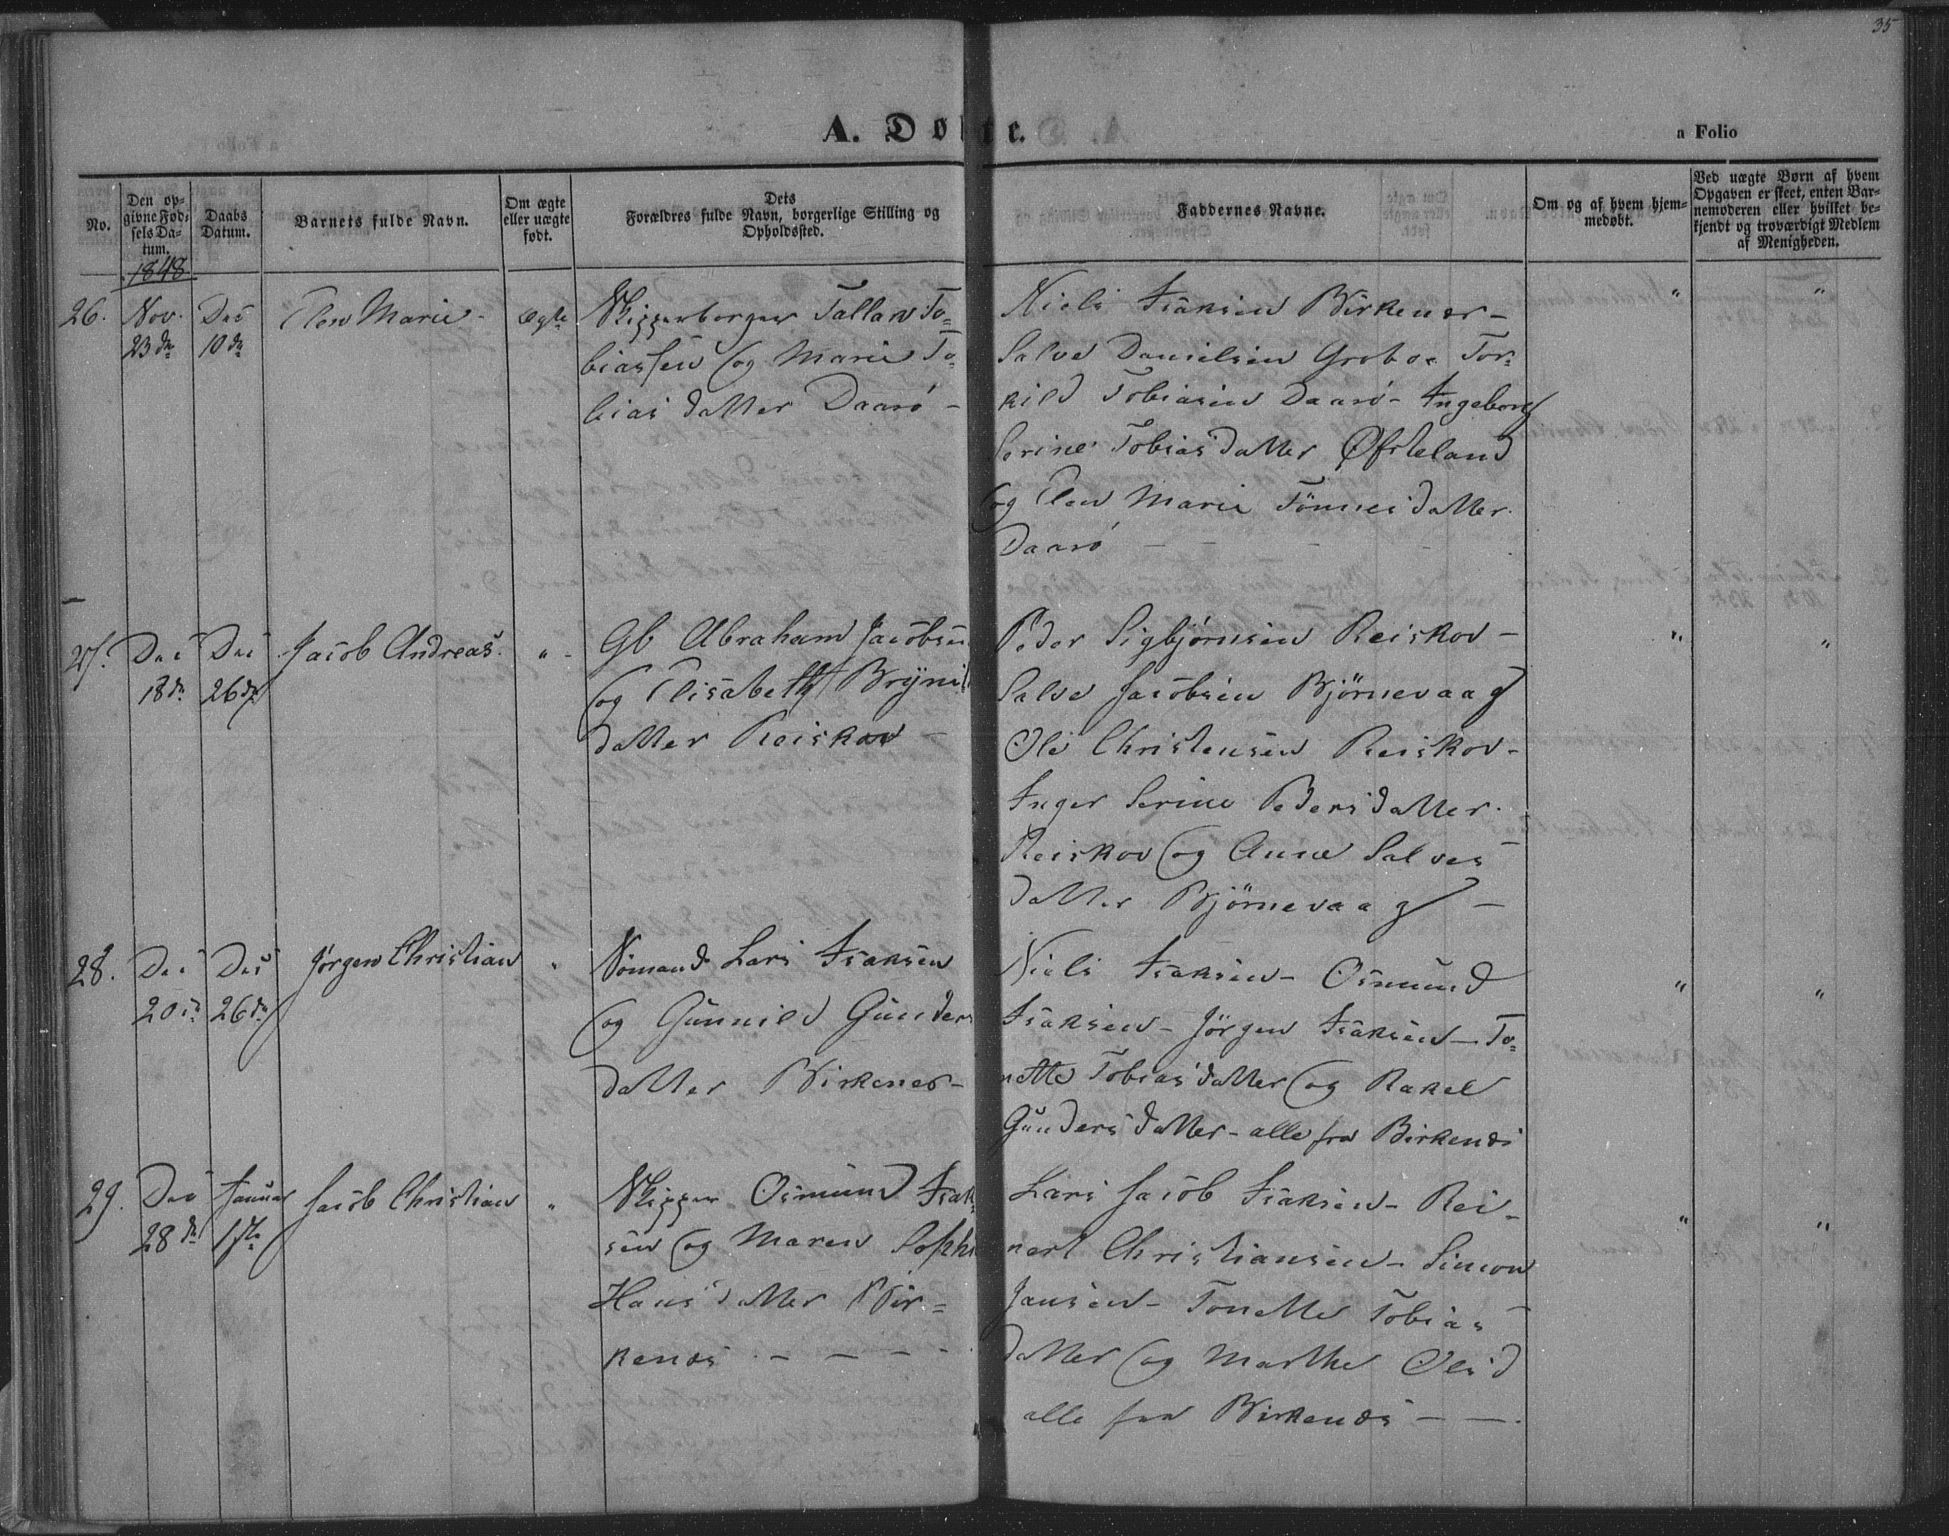 35
A. Døbte.
a Folio
No.
Den op-
givne Fød-
sels Da-
tum.
Daabs
Datum.
Barnets fulde Navn.
Om ægte
eller uægte
født.
Dets
Forældres fulde Navn, borgerlige Stilling og
Opholdssted.
Faddernes Navne.
Om og af hvem hjem-
medøbt.
Ved uægte Børn af hvem
Opgaven er skeet, enten Bar-
nemoderen eller hvilket be-
kjendt og troværdigt Medlem
af Menigheden.
1848
26.
Nov.
23de
Des
10de
Elen Marie -
Ægte
Skipperborger Tallak To=
biassen og Marie To=
biasdatter Daarø -
Niels Isaksen Birkenes -
Salve Danielsen Grobo - Tor=
kild Tobiasen Daarø - Ingeborg
Serine Tobiasdatter Øfsteland
og Elen Marie Tønnesdatter
Daarø - - - -
"
"
27.
Des
18de
Des
26de
Jacob Andreas.
" -
Gb Abraham Jacobsen
og Elisabeth Bryni
datter Reiskov -
Peder Sigbjørnsen Reiskov -
Salve Jacobsen Bjørnevaag
Ole Christensen Reiskov -
Inger Serine Pedersdatter
Reiskov og Anne Salves-
datter Bjørnevaag -
"
"
28.
Des
20de
Des
26de
Jørgen Christian
"
Sømand Lars Isaksen
og Gunnild Gunders
datter Birkenes -
Niels Isaksen - Osmund
Isaksen - Jørgen Isaksen - To=
nette Tobiasdatter og Rakel
Gundersdatter - alle fra Birkenes
"
"
29.
Des
28de
Januar
1ste
Jacob Christian
"
Skipper Osmund Isak
sen og Maren Sophi
Hansdatter Bir=
kenes - - - -
Lars Jacob Isaksen - Rei-
nert Christiansen - Simon
Jansen - Tonette Tobias-
datter og Marthe Olsd
alle fra Birkenes - -
"
"